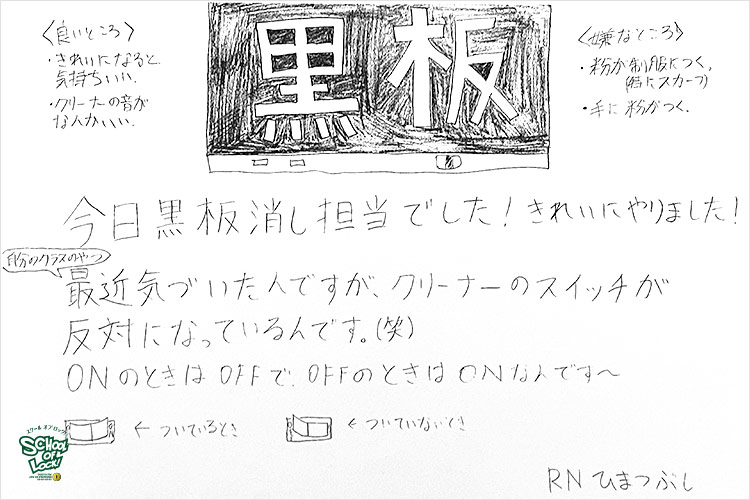 黒板
〈良いところ〉
・きれいになると
気持ちいい。
・クリーナーの音が
なんかいい。
〈嫌なところ〉
・粉が制服につく。
(特にスカーフ)
・手に粉がつく。
今日黒板消し担当でした！きれいにやりました！
自分のクラスのやつ
最近気づいたんですが、クリーナーのスイッチが
反対になっているんです。(笑)
ONのときはOFFで、OFFのときはONなんです〜
←ついているとき
←ついていないとき
スクール オブ ロック!
SCHOOL
OF
LOCK!
RN ひまつぶし